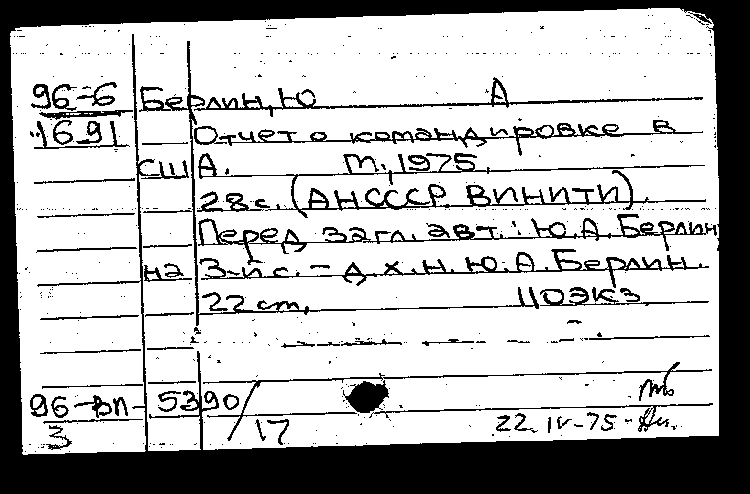 96-6 Берлин, Ю А
16 91 Отчет о командировке в
США. М., 1975.
28 с. (АН СССР. ВИНИТИ).
Перед загл. авт.: Ю.А. Берлин
на 3-й с. - д.х.н. Ю.А. Берлин.
22 cm. 110 экз.
96-вп- 5390/17
3 22.IV-75-